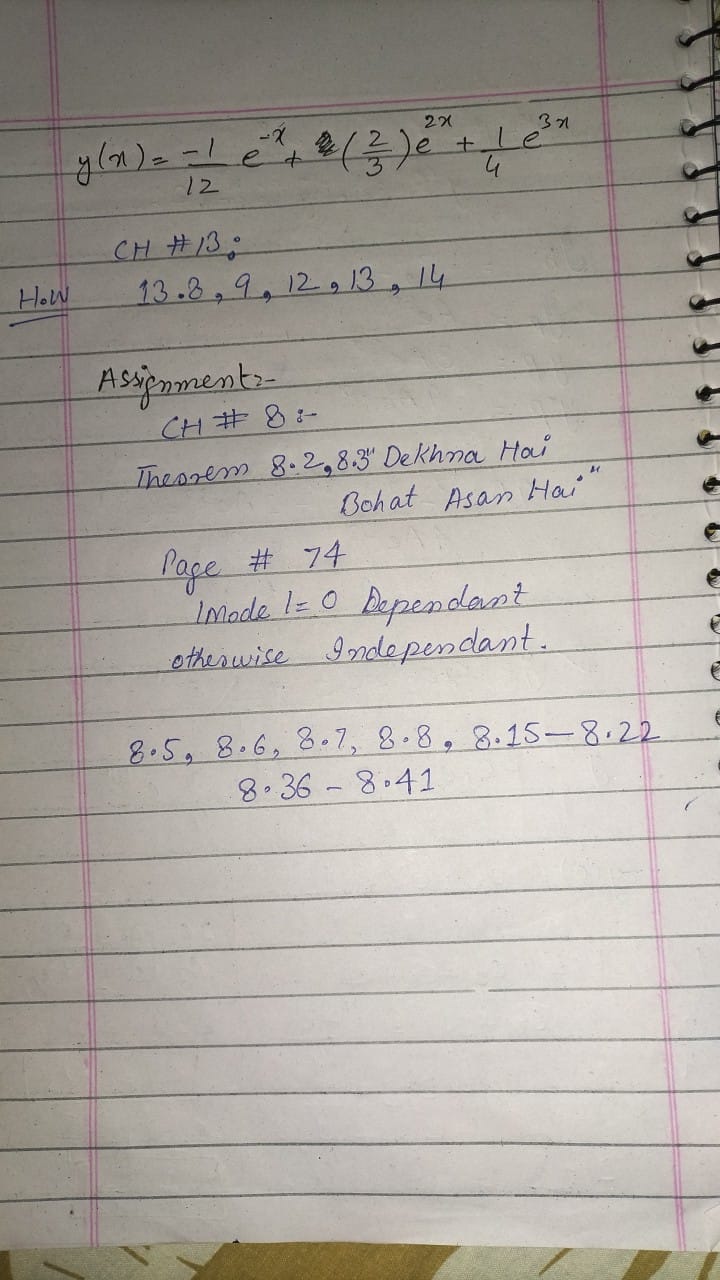 y(x) = -1/12 e^-x + (2/3) e^2x + 1/4 e^3x
CH #13:
H.W 13.8, 9, 12, 13, 14
Assignment:-
CH # 8 :-
Theorem 8.2, 8.3 "Dekhna Hai
Bohat Asan Hai"
Page # 74
|Mode| = 0 Dependant
otherwise Independant.
8.5, 8.6, 8.7, 8.8, 8.15 - 8.22
8.36 - 8.41